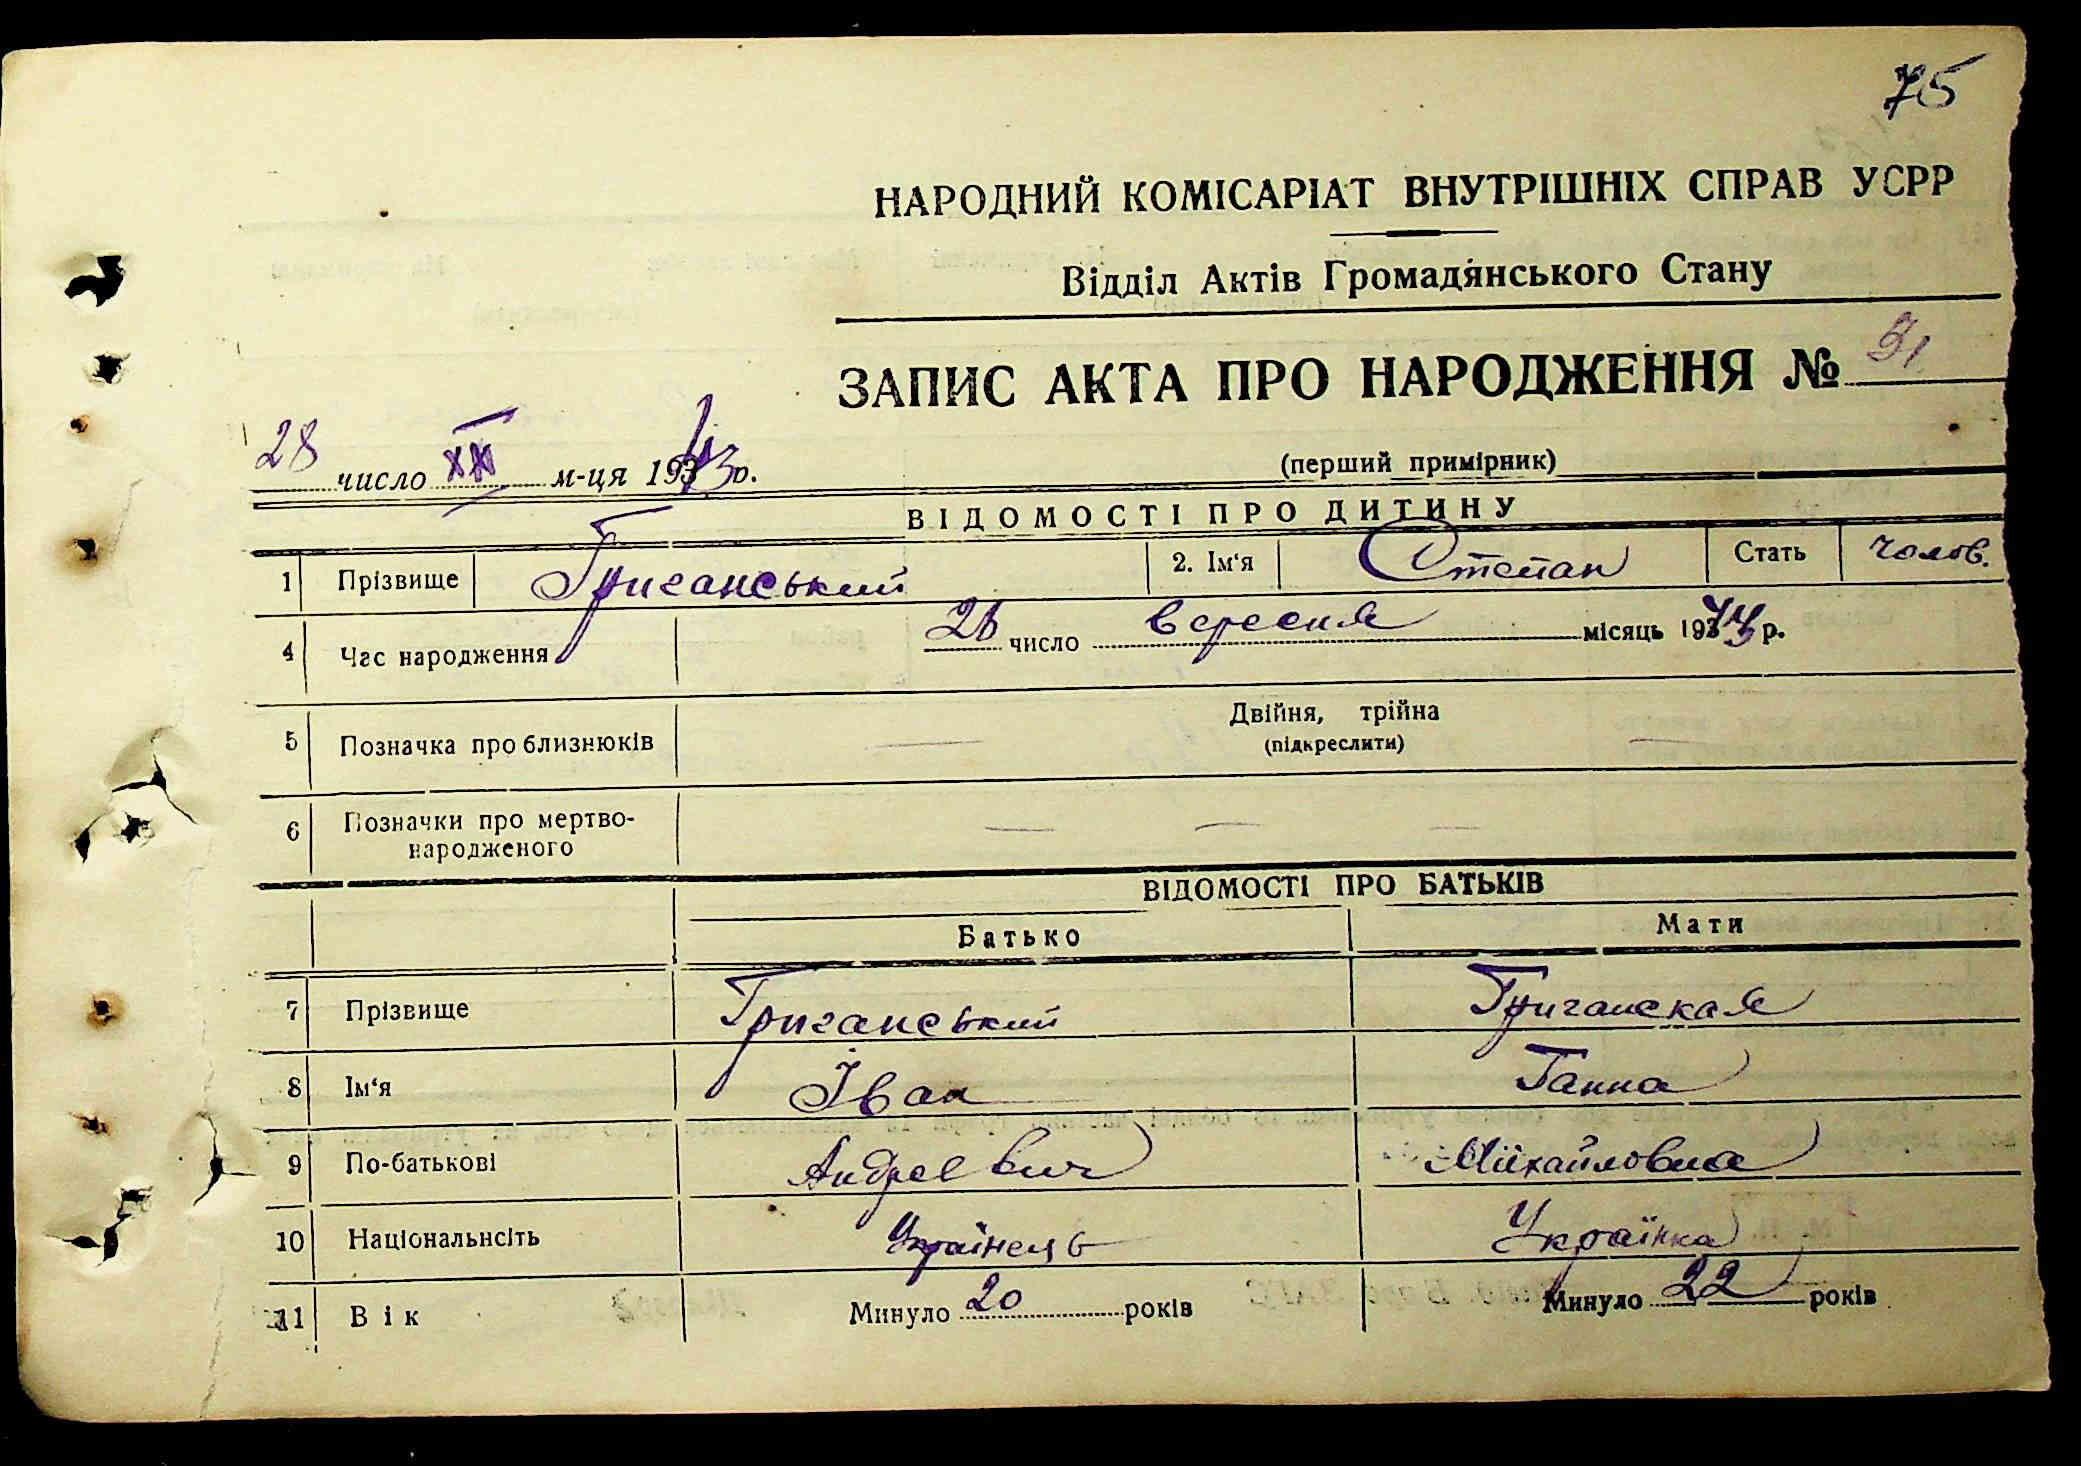 75
НАРОДНИЙ КОМІСАРІАТ ВНУТРІШНІХ СПРАВ УСРР
Відділ Актів Громадянського Стану
ЗАПИС АКТА ПРО НАРОДЖЕННЯ № 31
28 число м-ця 1943 р.
(перший примірник)
ВІДОМОСТІ ПРО ДИТИНУ
1 Прізвище Григанський 2. Ім'я Степан Стать Чолов.
4 Час народження 28 число вересня місяць 1943 р.
5 Позначка про близнюків — Двійня, трійна —
(підкреслити)
6 Позначки про мертво-
народженого — — —
ВІДОМОСТІ ПРО БАТЬКІВ
Батько Мати
7 Прізвище Григанський Григанская
8 Ім'я Іван Ганна
9 По-батькові Андреевич Михайловна
10 Національнсіть Українець Українка
11 Вік Минуло 20 років Минуло 22 років